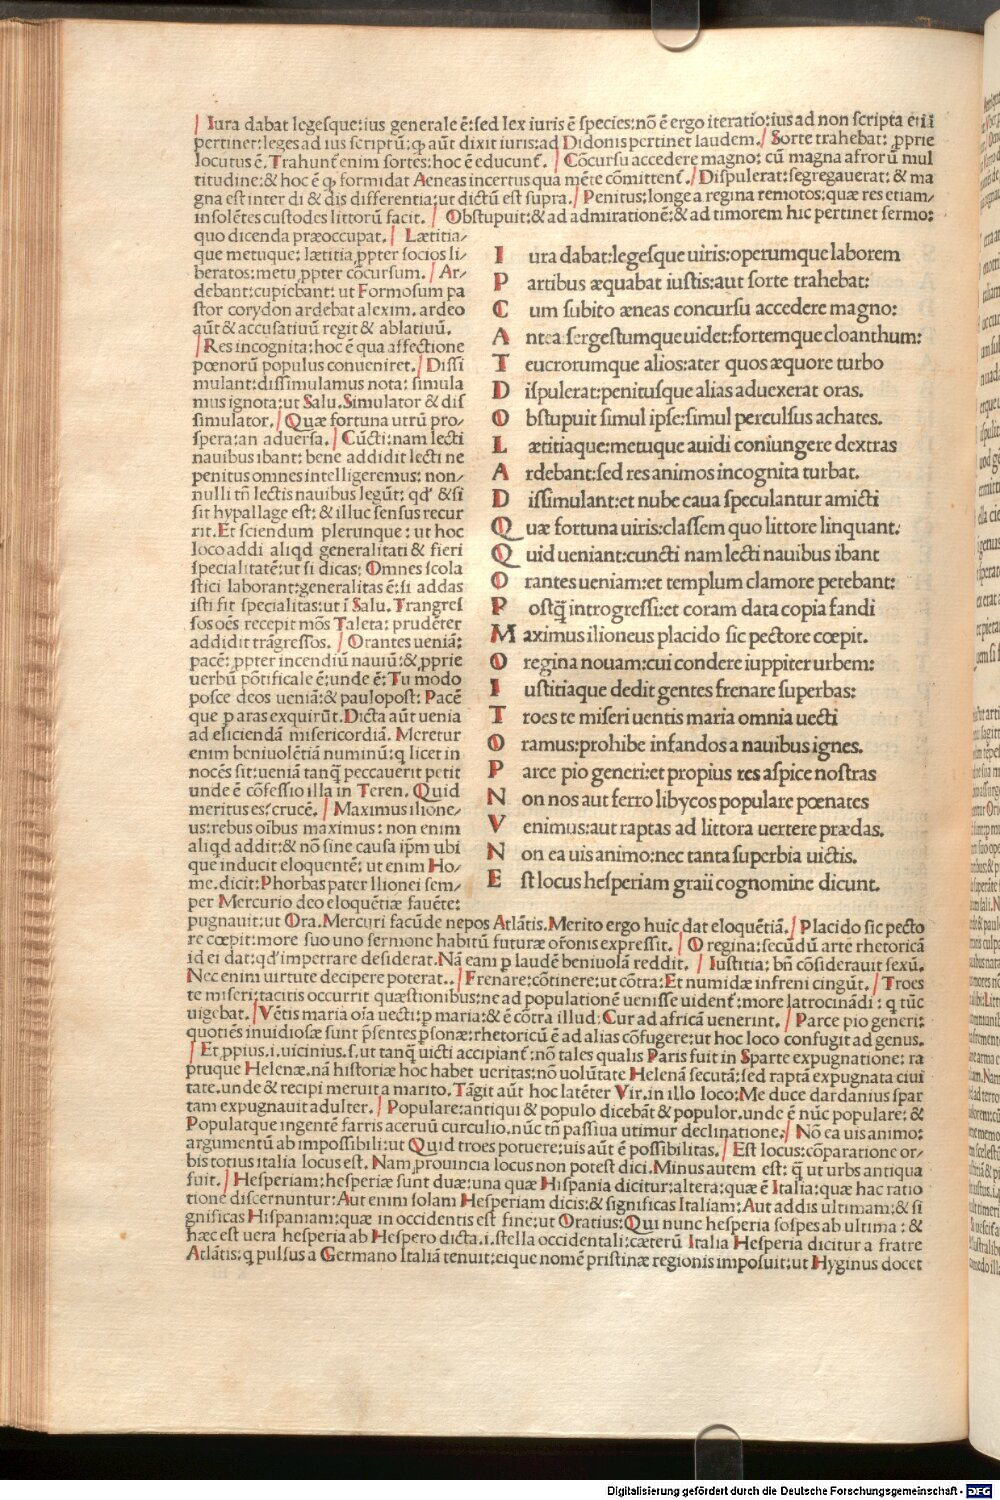 Iura dabat legesque:ius generale ē:sed lex iuris ē species:nō ē ergo iteratio:ius ad non scripta
pertinet:leges ad ius scriptū:ꝙ aūt dixit iuris:ad Didonis pertinet laudem. Sorte trahebat: ꝓprie
locutus ē.Trahunt̄ enim sortes:hoc ē educunt̄. Cōcursu accedere magno: cū magna afrorū mul
titudine:& hoc ē ꝙ formidat Aeneas incertus qua mēte cōmittent̄. Dispulerat:segregauerat: & ma
gna est inter di & dis differentia:ut dictū est supra. Penitus:longe a regina remotos:quæ res etiam/
insolētes custodes littorū facit. Obstupuit:& ad admirationē:& ad timorem hic pertinet sermo:
quo dicenda præoccupat. Lætitia/
que metuque: lætitia ꝓpter socios li/
beratos:metu ꝓpter cōcursum. Ar/
debant:cupiebant: ut Formosum pa
stor corydon ardebat alexim. ardeo
aūt & accusatiuū regit & ablatiuū.
Res incognita:hoc ē qua affectione
pœnorū populus conueniret. Dissi
mulant:dissimulamus nota: simula
mus ignota:ut Salu.Simulator & dis
simulator. Quæ fortuna utrū pro/
spera:an aduersa. Cūcti:nam lecti
nauibus ibant: bene addidit lecti ne
penitus omnes intelligeremus: non/
nulli tn̄ lectis nauibus legūt: qd' &si
sit hypallage est: & illuc sensus recur
rit.Et sciendum plerunque: ut hoc
loco addi aliqd generalitati & fieri
specialitatē:ut si dicas: Omnes scola
stici laborant:generalitas ē:si addas
isti fit specialitas:ut ī Salu. Trangres
sos oēs recepit mōs Taleta: prudēter
addidit trāgressos. Orantes ueniā:
pacē: ꝓpter incendiū nauiū:& ꝓprie
uerbū pōtificale ē:unde ē:Tu modo
posce deos ueniā:& paulopost: Pacē
que p aras exquirūt.Dicta aūt uenia
ad eliciendā misericordiā. Meretur
enim beniuolētiā numinū:q licet in
nocēs sit:ueniā tanq̄ peccauerit petit
unde ē cōfessio illa in Teren. Quid
meritus es: crucē. Maximus ilione/
us:rebus oībus maximus: non enim
aliqd addit:& nō sine causa ip̄m ubi
que inducit eloquentē: ut enim Ho/
me.dicit:Phorbas pater Ilionei sem/
per Mercurio deo eloquētiæ fauēte:
I ura dabat:legesque uiris:operumque laborem
P artibus æquabat iustis:aut sorte trahebat:
C um subito æneas concursu accedere magno:
A ntea:sergestumque uidet:fortemque cloanthum:
T eucrorumque alios:ater quos æquore turbo
D ispulerat:penitusque alias aduexerat oras.
O bstupuit simul ipse:simul perculsus achates.
L ætitiaque:metuque auidi coniungere dextras
A rdebant:sed res animos incognita turbat.
D issimulant:et nube caua speculantur amicti
Q uæ fortuna uiris:classem quo littore linquant:
Q uid ueniant:cuncti nam lecti nauibus ibant
O rantes ueniam:et templum clamore petebant:
P ostq̄ introgressi:et coram data copia fandi
M aximus ilioneus placido sic pectore cœpit.
O regina nouam:cui condere iuppiter urbem:
I ustitiaque dedit gentes frenare superbas:
T roes te miseri uentis maria omnia uecti
O ramus:prohibe infandos a nauibus ignes.
P arce pio generi:et propius res aspice nostras
N on nos aut ferro libycos populare pœnates
V enimus:aut raptas ad littora uertere prædas.
N on ea uis animo:nec tanta superbia uictis.
E st locus hesperiam graii cognomine dicunt.
pugnauit:ut Ora.Mercuri facūde nepos Atlātis.Merito ergo huic dat eloquētiā. Placido sic pecto
re cœpit:more suo uno sermone habitū futuræ or̄onis expressit. O regina:secūdū artē rhetoricā
id ei dat:qd' impetrare desiderat.Nā eam p laudē beniuolā reddit. Iustitia: bn̄ cōsiderauit sexū.
Nec enim uirtute decipere poterat.. Frenare:cōtinere:ut cōtra:Et numidæ infreni cingūt. Troes
te miseri:tacitis occurrit quæstionibus:ne ad populationē uenisse uident̄:more latrocinādi : q tūc
uigebat. Vētis maria oīa uecti:p maria:& ē cōtra illud:Cur ad africā uenerint. Parce pio generi:
quotiēs inuidiosæ sunt p̄sentes p̄sonæ:rhetoricū ē ad alias cōfugere:ut hoc loco confugit ad genus.
Et ꝓpius.i.uicinius.s.ut tanq̄ uicti accipiant̄:nō tales qualis Paris fuit in Sparte expugnatione: ra
ptuque Helenæ.nā historiæ hoc habet ueritas:nō volūtate Helenā secutā:sed raptā expugnata ciui
tate.unde & recipi meruit a marito.Tāgit aūt hoc latēter Vir.in illo loco:Me duce dardanius spar
tam expugnauit adulter. Populare:antiqui & populo dicebāt & populor.unde ē nūc populare: &
Populatque ingentē farris aceruū curculio.nūc tn̄ passiua utimur declinatione. Nō ea uis animo:
argumentū ab impossibili:ut Quid troes potuere:uis aūt ē possibilitas. Est locus:cōparatione or/
bis totius italia locus est.Nam prouincia locus non potest dici.Minus autem est: q̄ ut urbs antiqua
fuit. Hesperiam:hesperiæ sunt duæ:una quæ Hispania dicitur:altera:quæ ē Italia:quæ hac ratio
tione discernuntur:Aut enim solam Hesperiam dicis:& significas Italiam:Aut addis ultimam:& si
gnificas Hispaniam:quæ in occidentis est fine:ut Oratius:Qui nunc hesperia sospes ab ultima : &
hæc est uera hesperia ab Hespero dicta.i.stella occidentali:cæterū Italia Hesperia dicitur a fratre
Atlātis:q pulsus a Germano Italiā tenuit:eique nomē pristinæ regionis imposuit:ut Hyginus docet
Digitalisierung gefördert durch die Deutsche Forschungsgemeinschaft - DFG